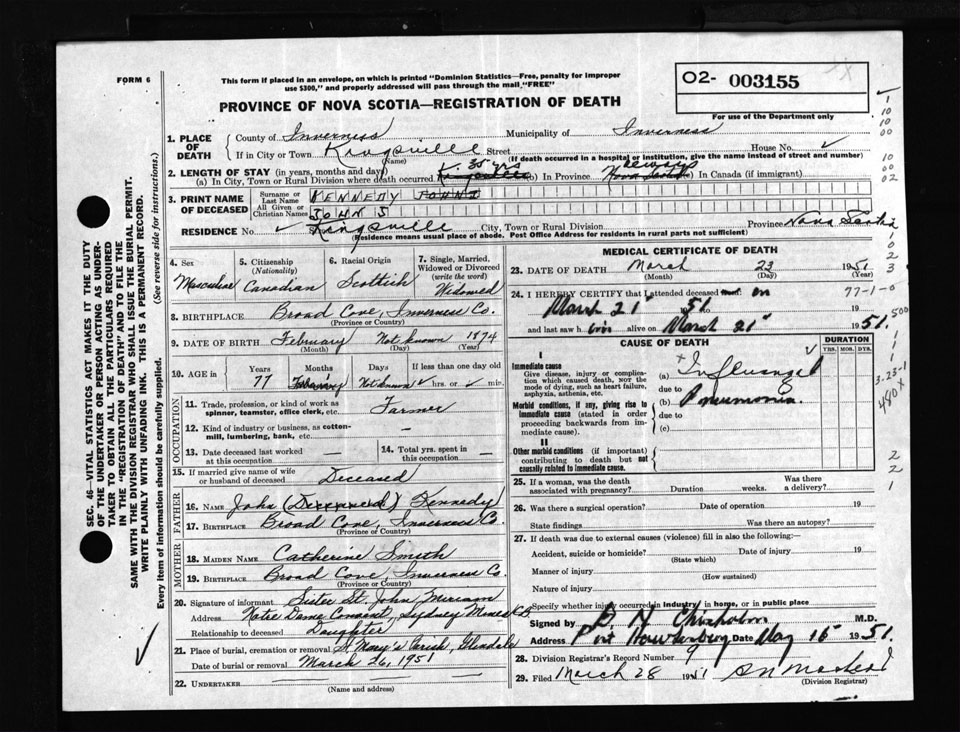 FORM 6
This form if placed in an envelope, on which is printed "Dominion Statistics—Free, penalty for improper
use $300," and properly addressed will pass through the mail "FREE"
O2- 003155
PROVINCE OF NOVA SCOTIA—REGISTRATION OF DEATH
For use of the Department only
1. PLACE OF DEATH
County of Inverness Municipality of Inverness
If in City or Town Kingsville Street House No.
(Name) (If death occurred in a hospital or institution, give the name instead of street and number)
2. LENGTH OF STAY (in years, months and days) 35 yrs always
(a) In City, Town or Rural Division where death occurred Kingsville (b) In Province Nova Scotia (c) In Canada (if immigrant)
3. PRINT NAME OF DECEASED
Surname or Last Name KENNEDY JOHN J
All Given or Christian Names JOHN J
RESIDENCE No. Kingsville City, Town or Rural Division Province Nova Scotia
(Residence means usual place of abode. Post Office Address for residents in rural parts not sufficient)
4. Sex Masculine
5. Citizenship (Nationality) Canadian
6. Racial Origin Scottish
7. Single, Married, Widowed or Divorced (write the word) Widowed
8. BIRTHPLACE Broad Cove, Inverness Co.
(Province or Country)
9. DATE OF BIRTH February Not known 1874
(Month) (Day) (Year)
10. AGE in Years Months Days If less than one day old
77 February Not known hrs. or min.
OCCUPATION
11. Trade, profession, or kind of work as spinner, teamster, office clerk, etc. Farmer
12. Kind of industry or business, as cotton-mill, lumbering, bank, etc. —
13. Date deceased last worked at this occupation —
14. Total yrs. spent in this occupation —
15. If married give name of wife or husband of deceased Deceased
FATHER
16. NAME John (Deceased) Kennedy
17. BIRTHPLACE Broad Cove, Inverness Co.
(Province or Country)
MOTHER
18. MAIDEN NAME Catherine Smith
19. BIRTHPLACE Broad Cove, Inverness Co.
(Province or Country)
20. Signature of informant Sister St. John Miriam
Address Notre Dame Convent, Sydney Mines N.S.
Relationship to deceased Daughter
21. Place of burial, cremation or removal St Mary's Parish, Glendale
Date of burial or removal March 26, 1951
22. UNDERTAKER
(Name and address)
MEDICAL CERTIFICATE OF DEATH
23. DATE OF DEATH March 23 1951
(Month) (Day) (Year)
24. I HEREBY CERTIFY that I attended deceased from: on
March 21st 51 to 19
77-1-0
and last saw him alive on March 21st 1951.
CAUSE OF DEATH
DURATION
YRS. MOS. DYS.
I
Immediate cause
Give disease, injury or complication which caused death, not the mode of dying, such as heart failure, asphyxia, asthenia, etc.
(a) Influenzal
due to
(b) Pneumonia.
due to
(c)
Morbid conditions, if any, giving rise to immediate cause (stated in order proceeding backwards from immediate cause).
II
Other morbid conditions (if important) contributing to death but not causally related to immediate cause.
3-23-1
480X
25. If a woman, was the death associated with pregnancy? Duration weeks. Was there a delivery?
26. Was there a surgical operation? Date of operation 19
State findings Was there an autopsy?
27. If death was due to external causes (violence) fill in also the following:
Accident, suicide or homicide? Date of injury 19
(State which)
Manner of injury
(How sustained)
Nature of injury
Specify whether injury occurred in Industry, in home, or in public place
Signed by P. N. Chisholm M.D.
Address Port Hawkesbury Date May 15 1951.
28. Division Registrar's Record Number 9
29. Filed March 28 1951
(Division Registrar)
SEC. 46—VITAL STATISTICS ACT MAKES IT THE DUTY
OF THE UNDERTAKER OR PERSON ACTING AS UNDER-
TAKER TO OBTAIN ALL THE PARTICULARS REQUIRED
IN THE "REGISTRATION OF DEATH" AND TO FILE THE
SAME WITH THE DIVISION REGISTRAR WHO SHALL ISSUE THE BURIAL PERMIT.
WRITE PLAINLY WITH UNFADING INK. THIS IS A PERMANENT RECORD.
Every item of information should be carefully supplied. (See reverse side for instructions.)